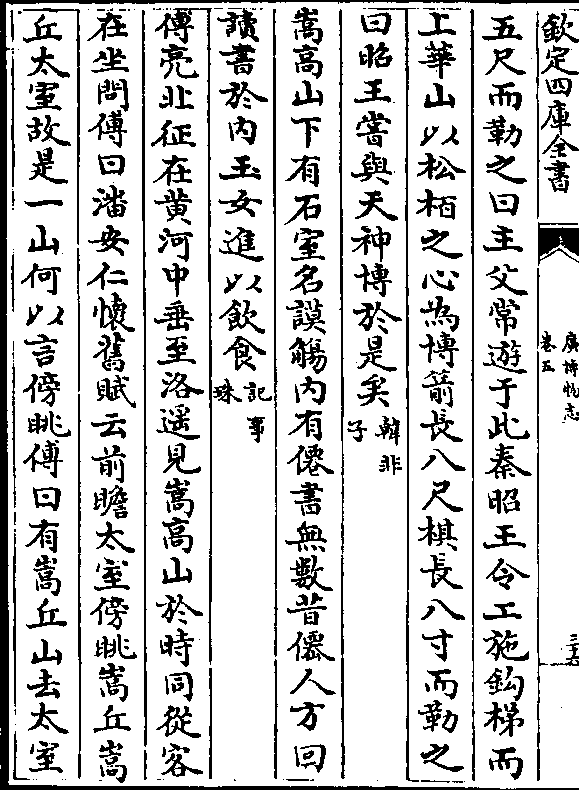 欽定四庫全書
廣博物志
卷五
三十六
五尺而勒之曰主父常遊于此秦昭王令工施鈎梯而
上華山以松栢之心為博箭長八尺棋長八寸而勒之
曰昭王嘗與天神博於是矣韓非子
嵩高山下有石室名謨觴内有僊書無數昔僊人方回
讀書於内玉女進以飲食記事珠
傅亮北征在黄河中垂至洛遥見嵩高山於時同從客
在坐問傅曰潘安仁懷舊賦云前瞻太室傍眺嵩丘嵩
丘太室故是一山何以言傍眺傅曰有嵩丘山去太室